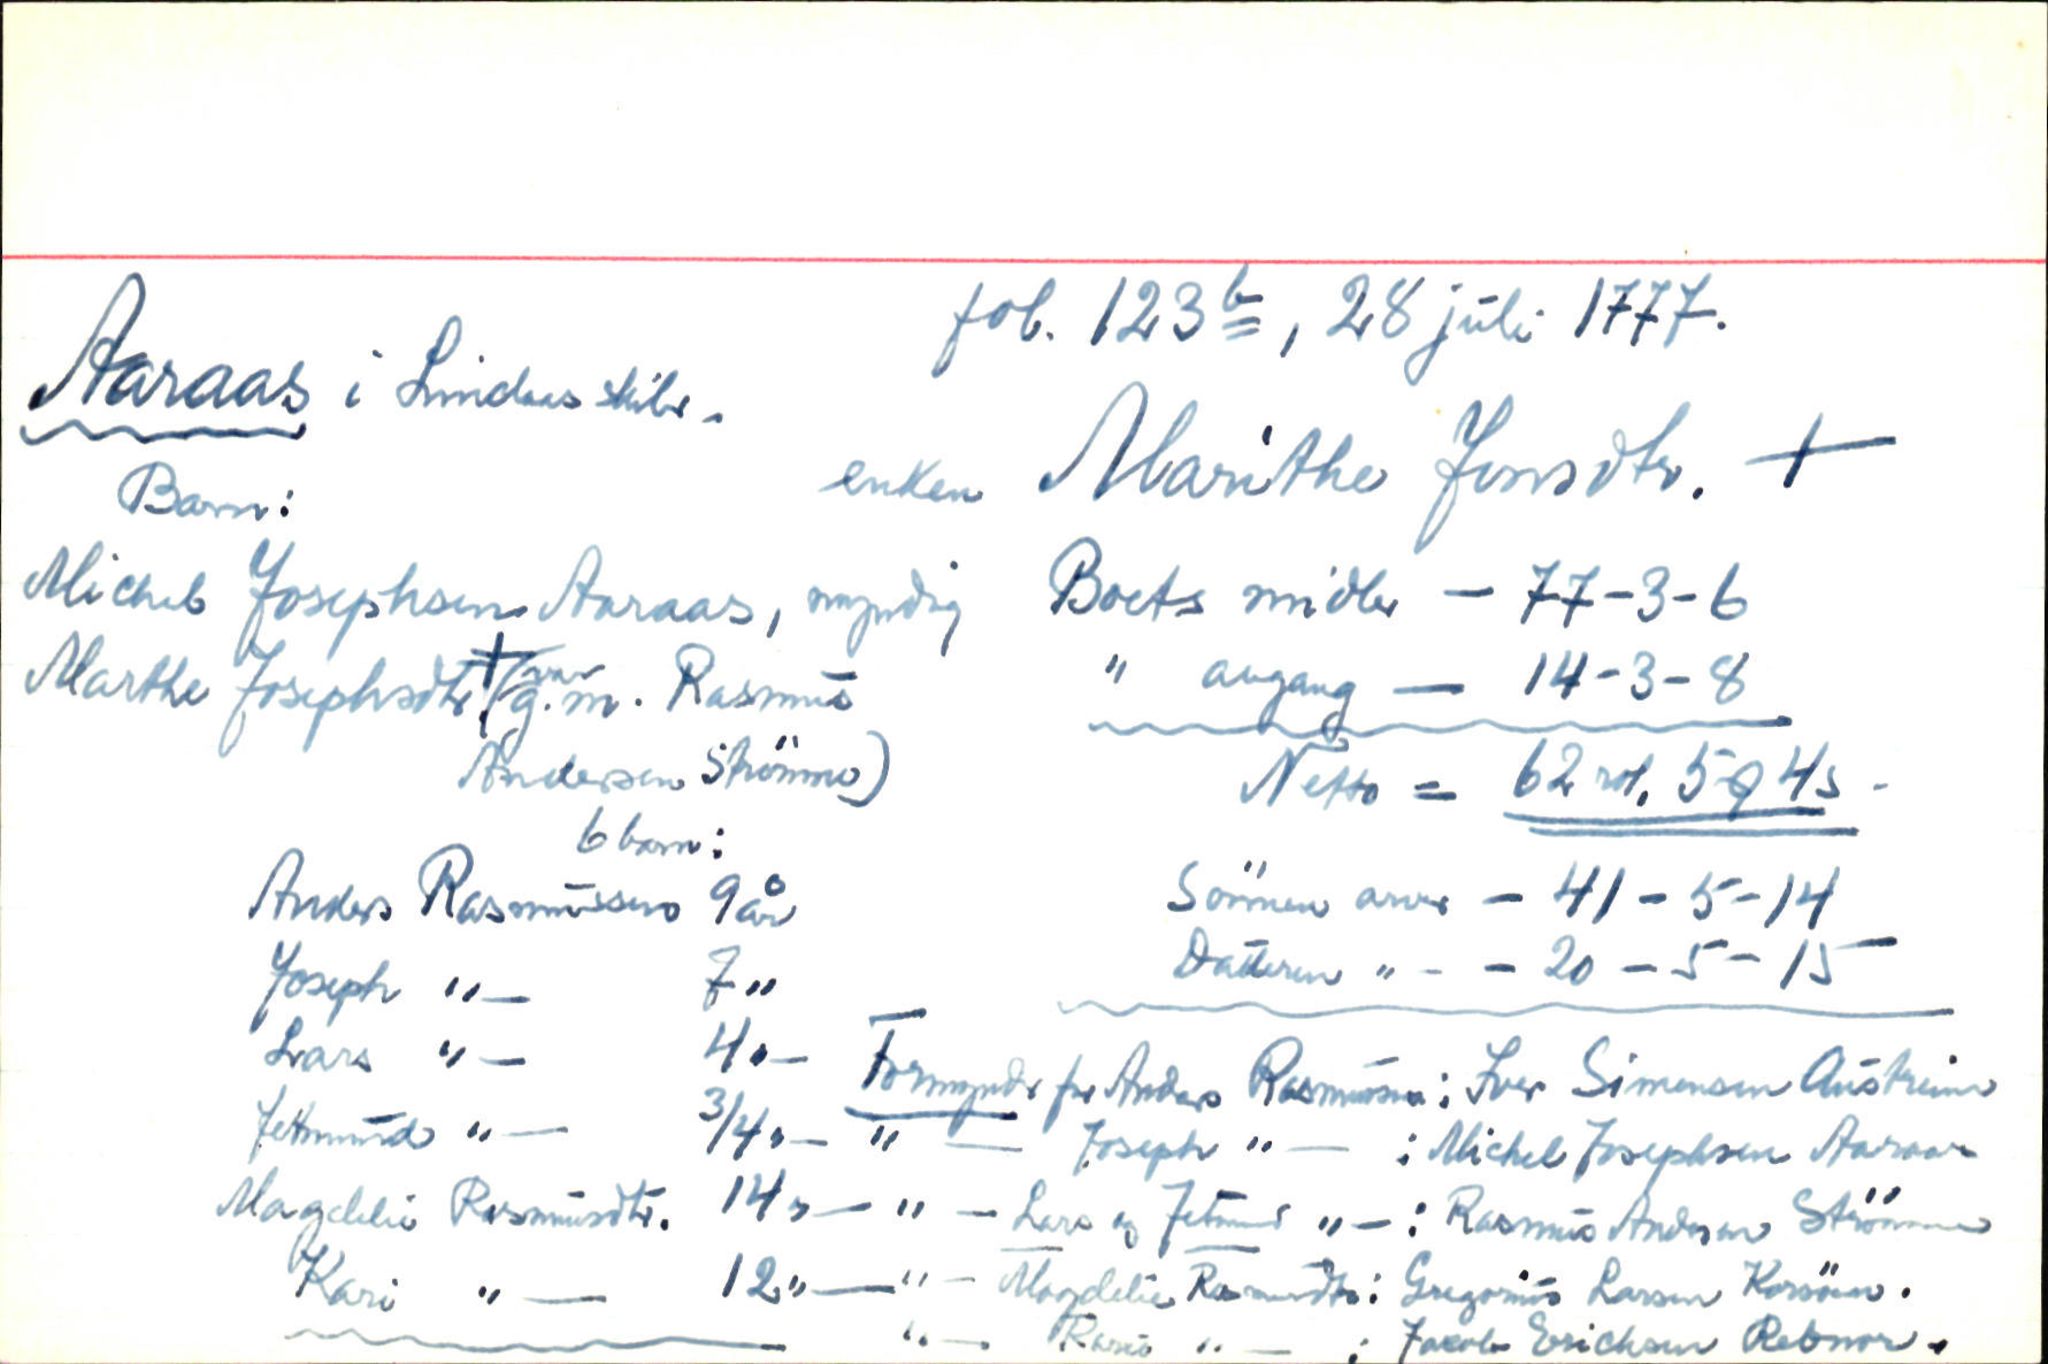 fol. 123b, 28 juli 1777.
Aaraas i Lindaas skibr.
enken Marithe Jonsdtr. +
Barn:
Michel Josephsen Aaraas, myndig
Marthe Josephsdtr. + (var g.m. Rasmus
Andersen Strömme)
6 barn:
Anders Rasmussen 9 år
Joseph "— 7 "
Lars "— 4 "—
Jetmund "— 3/4 "—
Magdeli Rasmusdtr. 14 "—
Kari "— 12 "—
Boets midler — 77-3-6
" avgang — 14-3-8
Netto = 62 rd. 5 9 4 s -
Sönnen arver - 41-5-14
Datteren " - - 20-5-15
Formyndr for Anders Rasmussen: Iver Simensen Austreim
" — Joseph "— : Michel Josephsen Aaraas
" — Lars og Jetmund "— : Rasmus Andersen Strömme
" — Magdeli Rasmusdtr: Gregorius Larsen Korsöen.
"— "— : Jacob Erichsen Rebnor.